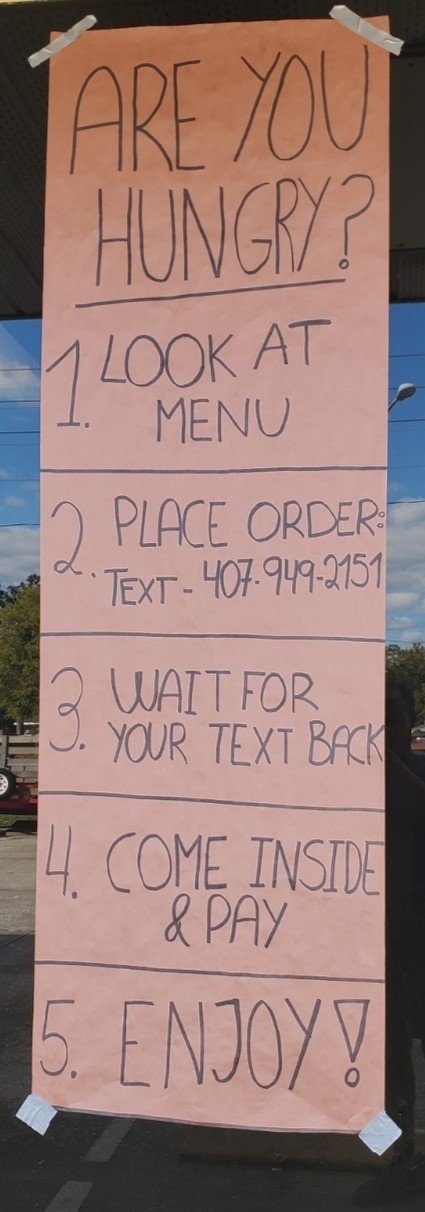 ARE YOU
HUNGRY?
1. LOOK AT
MENU
2. PLACE ORDER:
TEXT - 407-949-2151
3. WAIT FOR
YOUR TEXT BACK
4. COME INSIDE
& PAY
5. ENJOY!